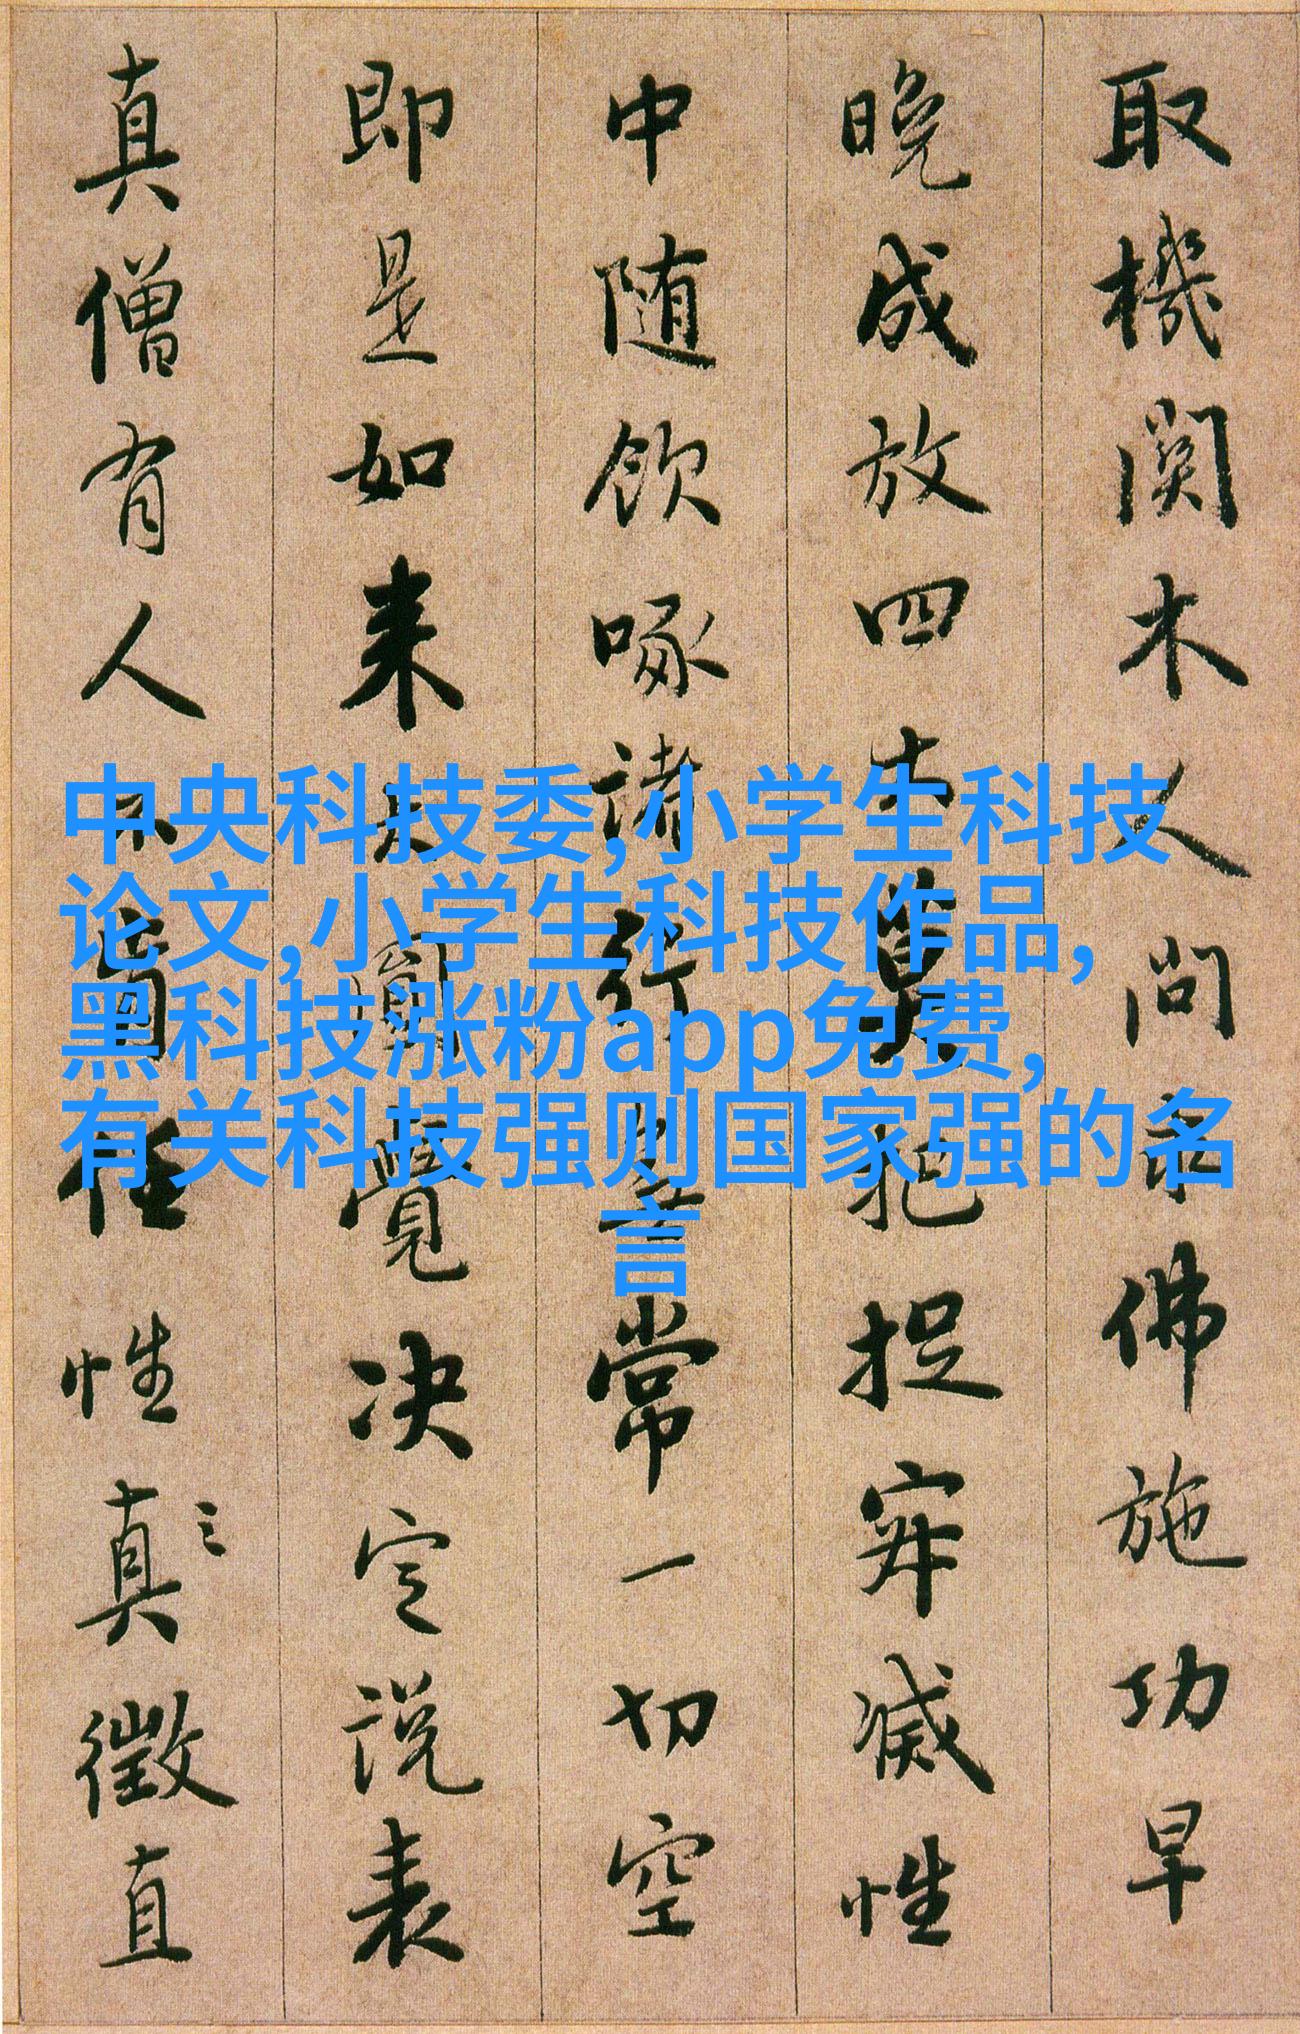 中央科技委,小学生科技
论文,小学生科技作品,
黑科技涨粉app免费,
有关科技强则国家强的名
言
取機関木人問求佛施功早
晚成放四大莫把捉寂滅性
中随飲啄諸行無常一切空
即是如来大圓覺决定說表
真僧有人不肯任性真徵直